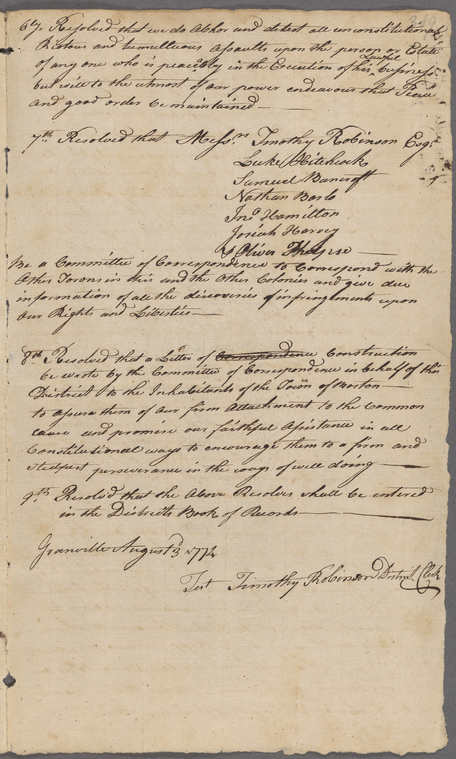 6ly. Resolved that we do Abhor and detest all unconstitutional
Riotous and tumultuous Assaults upon the person or Estate
of any one who is peacably in the Execution of his lawful business
but will to the utmost of our power endeavour that Peace
and good order be maintained
7th Resolved that Messrs Timothy Robinson Esqr
Luke Hitchcock
Samuel Bancroft
Nathan Barlo
Jno Hamilton
Josiah Harvey
& Oliver Phelpse
Be a Committee of Correspondence to Correspond with the
Other Towns in this and the Other Colonies and give due
information of all the discoveries of infringments upon
Our Rights and Liberties
8th Resolved that a Letter of Correspondence Construction
be wrote by the Committee of Correspondence in behalf of this
District to the Inhabitants of the Town of Boston
to assure them of Our firm Attachment to the Common
cause and promise our faithful Assistance in all
Constitutional ways to encourage them to a firm and
Stedfast perseverance in the cause of well doing
9th Resolvd that the Above Resolves shall be entered
in the Districts Book of Records
Granville August 3d 1774
Test Timothy Robinson District Clerk